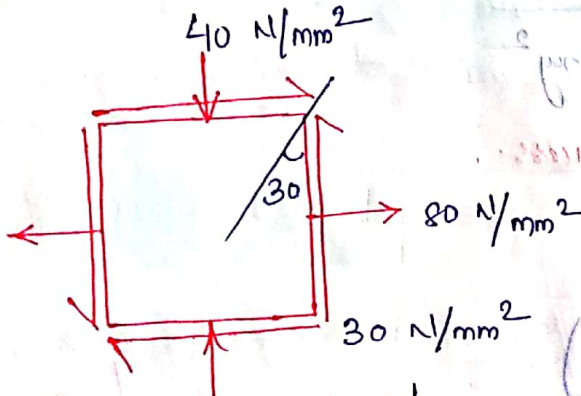 40 N/mm²
30
80 N/mm²
30 N/mm²